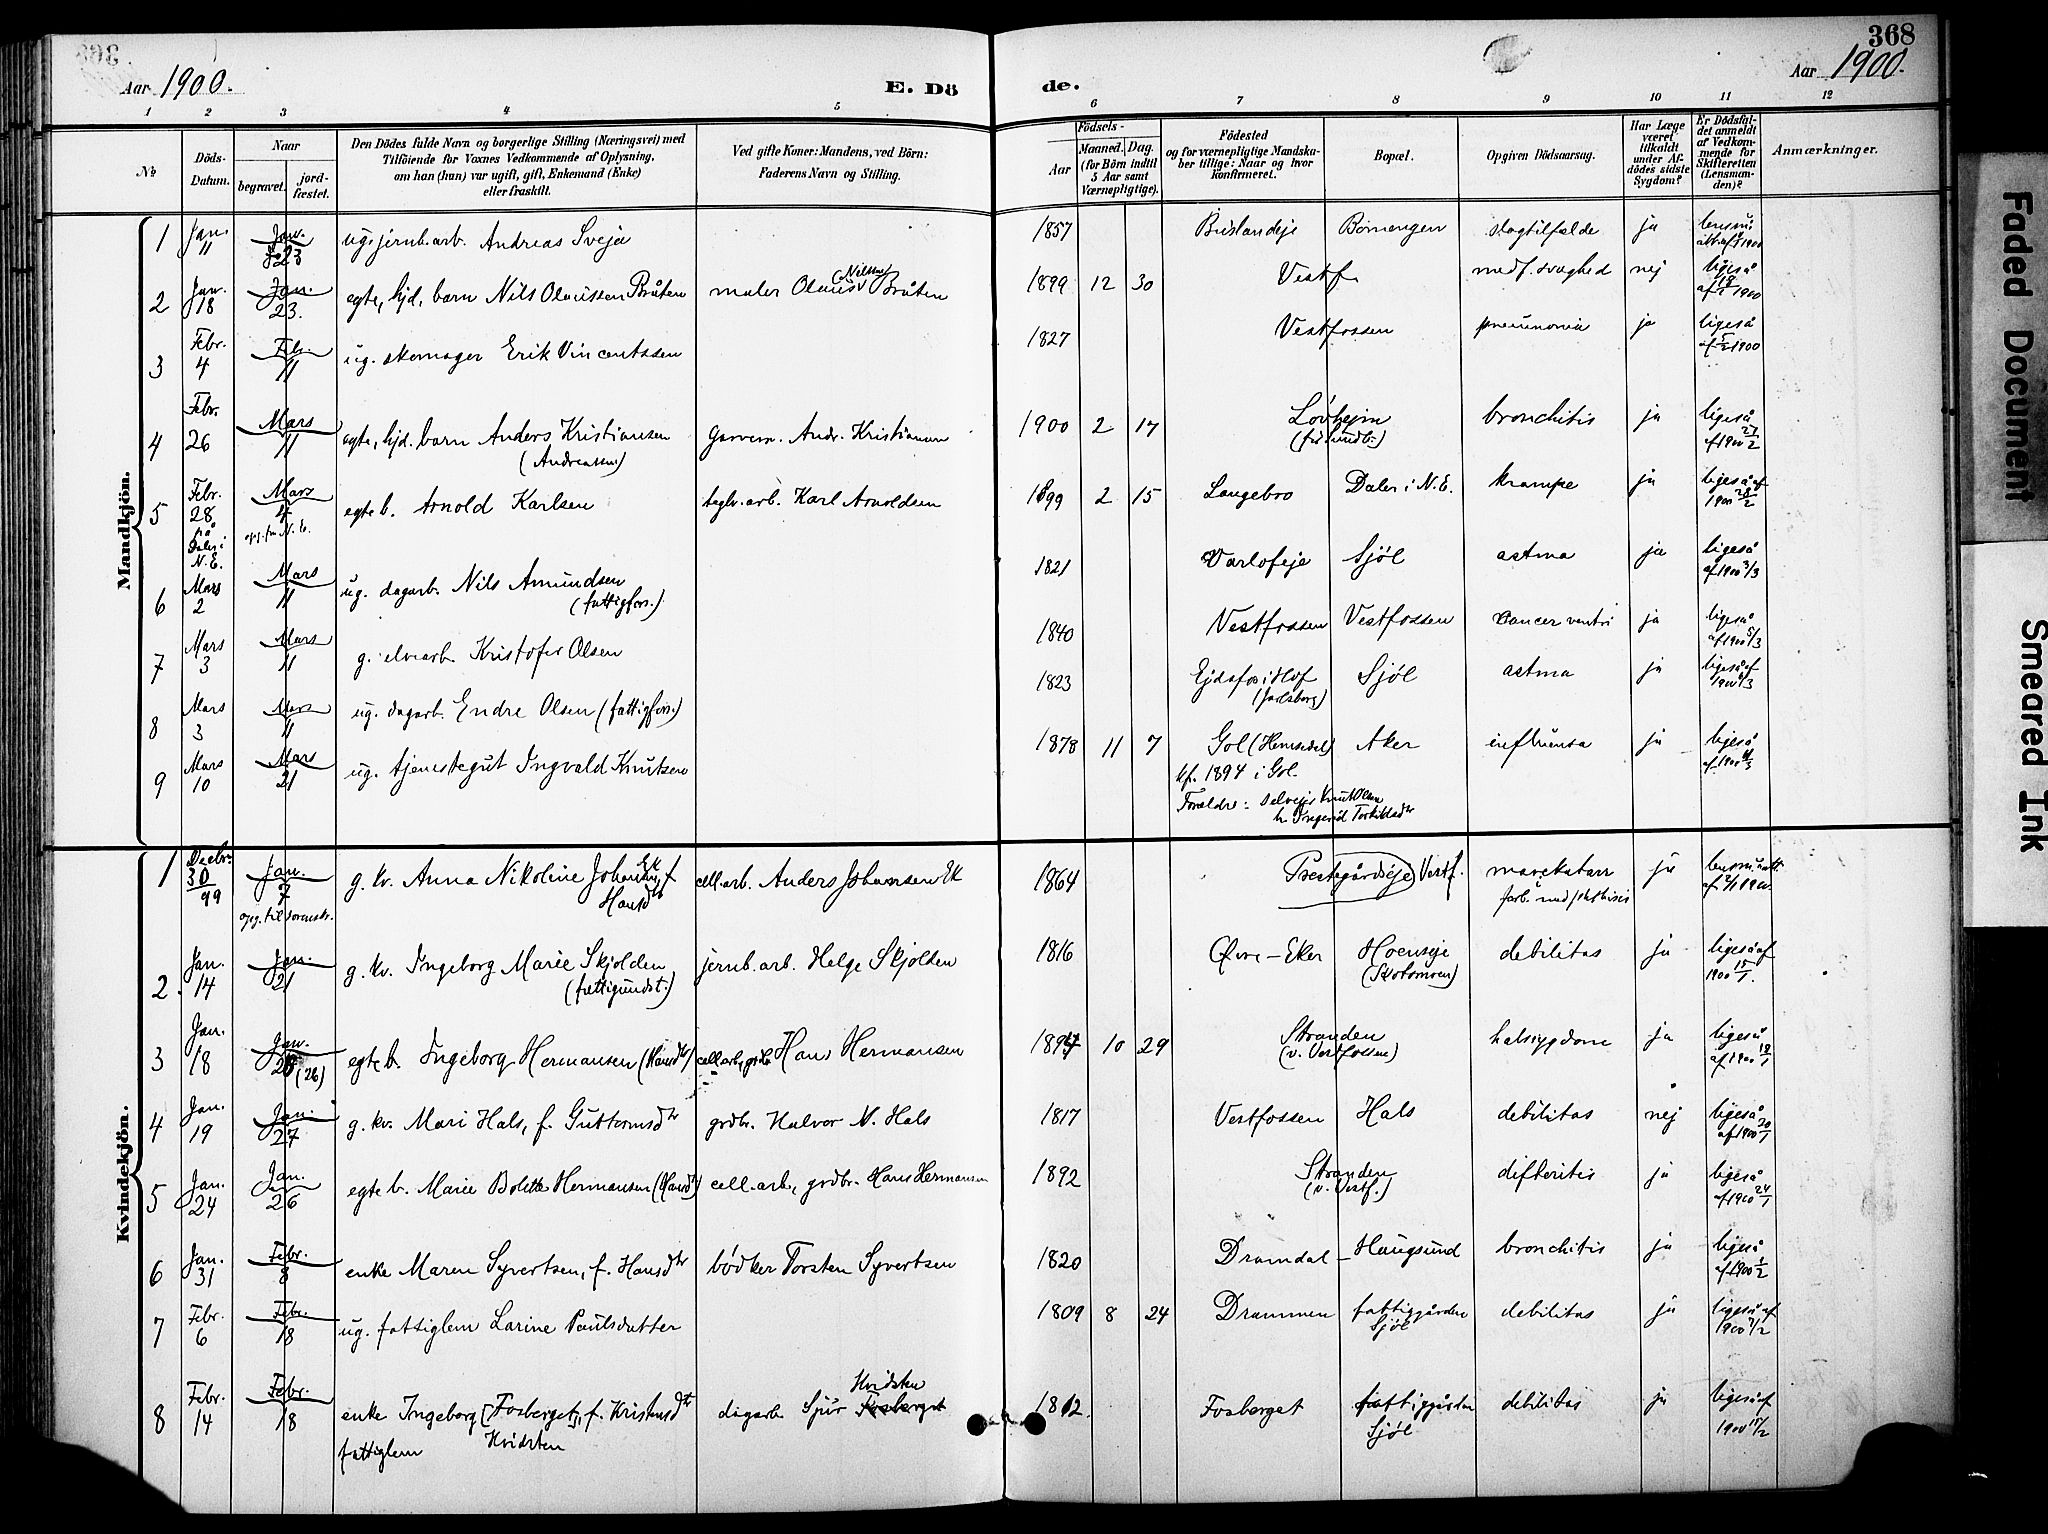 368
Aar 1900.
E. Dö
de.
Aar 1900.
1 2 3 4 5 6 7 8 9 10 11 12
№
Döds-Datum.
Naar
begravet.
jord-fæstet.
Den Dödes fulde Navn og borgerlige Stilling (Næringsvei) med
Tilföiende for Voxnes Vedkommende af Oplysning,
om han (hun) var ugift, gift, Enkemand (Enke)
eller fraskilt.
Ved gifte Koner: Mandens, ved Börn:
Faderens Navn og Stilling.
Födsels-
Aar
Maaned. Dag.
(for Börn indtil
5 Aar samt
Værnepligtige).
Födested
og for værnepligtige Mandska-
ber tillige: Naar og hvor
konfirmeret.
Bopæl.
Opgiven Dödsaarsag.
Har Læge
været
tilkaldt
under Af-
dödes sidste
Sygdom?
Er Dödsfal-
det anmeldt
af Vedkom-
mende for
Skifteretten
(Lensman-
den)?
Anmærkninger.
Mandkjön.
1 Jan. 11 Jan. 23 ug. jernb.arb. Andreas Sveja 1857 Bomengen slagtilfælde ja
2 Jan. 18 Jan. 23. egte, hjd. barn Nils Olaussen Bråten maler Olaus Nilsen Bråten 1899 12 30 Vestf. medf. svaghed nej ligeså
3 Febr. 4 Febr. 11 ug. skomager Erik Vincentssen 1827 Vestfossen pneumonia ja ligeså
4 Febr. 26 Mars 11 egte, hjd. barn Anders Kristiansen garverm. Andr. Kristiansen 1900 2 17 bronchitis ja ligeså
(Andreassen)
5 Febr. 28 Mars 4 egte b. Arnold Karlsen teglv.arb. Karl Arnoldsen 1899 2 15 Langebro Daler i N.E. krampe ja ligeså af 1900 28/2
på Daler i N.E.
6 Mars 2 Mars 11 ug. dagarb. Nils Amundsen 1821 Varlofeje Sjöl astma ja ligeså af 1900 3/3
(fattigfors.)
7 Mars 3 Mars 11 g. elvearb. Kristofer Olsen 1840 Vestfossen Vestfossen cancer ventri ja ligeså af 1900 5/3
8 Mars 3 Mars 11 ug. dagarb. Endre Olsen (fattigfors.) 1823 Ejdsfos i Hof Sjöl astma ja ligeså af
(Jarlsberg)
9 Mars 10 Mars 21 ug. tjenestegut Ingvald Knutsen 1878 11 7 Gol (Hemsedal) Aker influensa ja ligeså
kf. 1894 i Gol.
Forældre: selvejer Knut Olsen
Kvindekjön.
1 Decbr. 30 99 Jan. 7 g. kv. Anna Nikoline Johansen Ek, f. Hansdtr cell.arb. Anders Johansen Ek 1864 Prestegårdseje Vestf. mavekatarr ja
farb. med phthisis
2. Jan. 14 Jan. 21 g. kv. Ingeborg Marie Skjolden jernb.arb. Helge Skjolden 1816 Øvre-Eker Hoenseje debilitas ja ligeså af 1900 15/1
(fattigundst.)
3 Jan. 18 Jan. (26) egte b. Ingeborg Hermansen (Hansdtr) cell.arb., grdb. Hans Hermansen 10 29 Stranden halssygdom ja ligeså af 1900
(v. Vestfossen)
4 Jan. 19 Jan. 27 g. kv. Mari Hals, f. Guttormsdtr grdbr. Halvor N. Hals 1817 Vestfossen Hals debilitas nej ligeså af 1900 20/1
5 Jan. 24 Jan. 26 egte b. Marie Bolette Hermansen (Hansdtr) cell.arb., grdbr. Hans Hermansen 1892 Stranden difteritis ja ligeså af 1900 24/1
(v. Vestf.)
6 Jan. 31 Febr. 8 enke Maren Syvertsen, f. Hansdtr bödker Torsten Syvertsen 1820 Dramdal Haugsund bronchitis ja ligeså af 1900 1/2
7 Febr. 6 Febr. 18 ug. fattiglem Larine Paulsdatter 1809 8 24 Drammen fattiggården Sjöl debilitas ja ligeså af 1900 7/2
8 Febr. 14 Febr. 18 enke Ingeborg [Fosberget], f. Kristensdtr dagarb. Fosberget Hvidsten 1812. Fosberget fattiggården Sjöl debilitas ja ligeså af
fattiglem Hvidsten
Faded Document
Smeared Ink